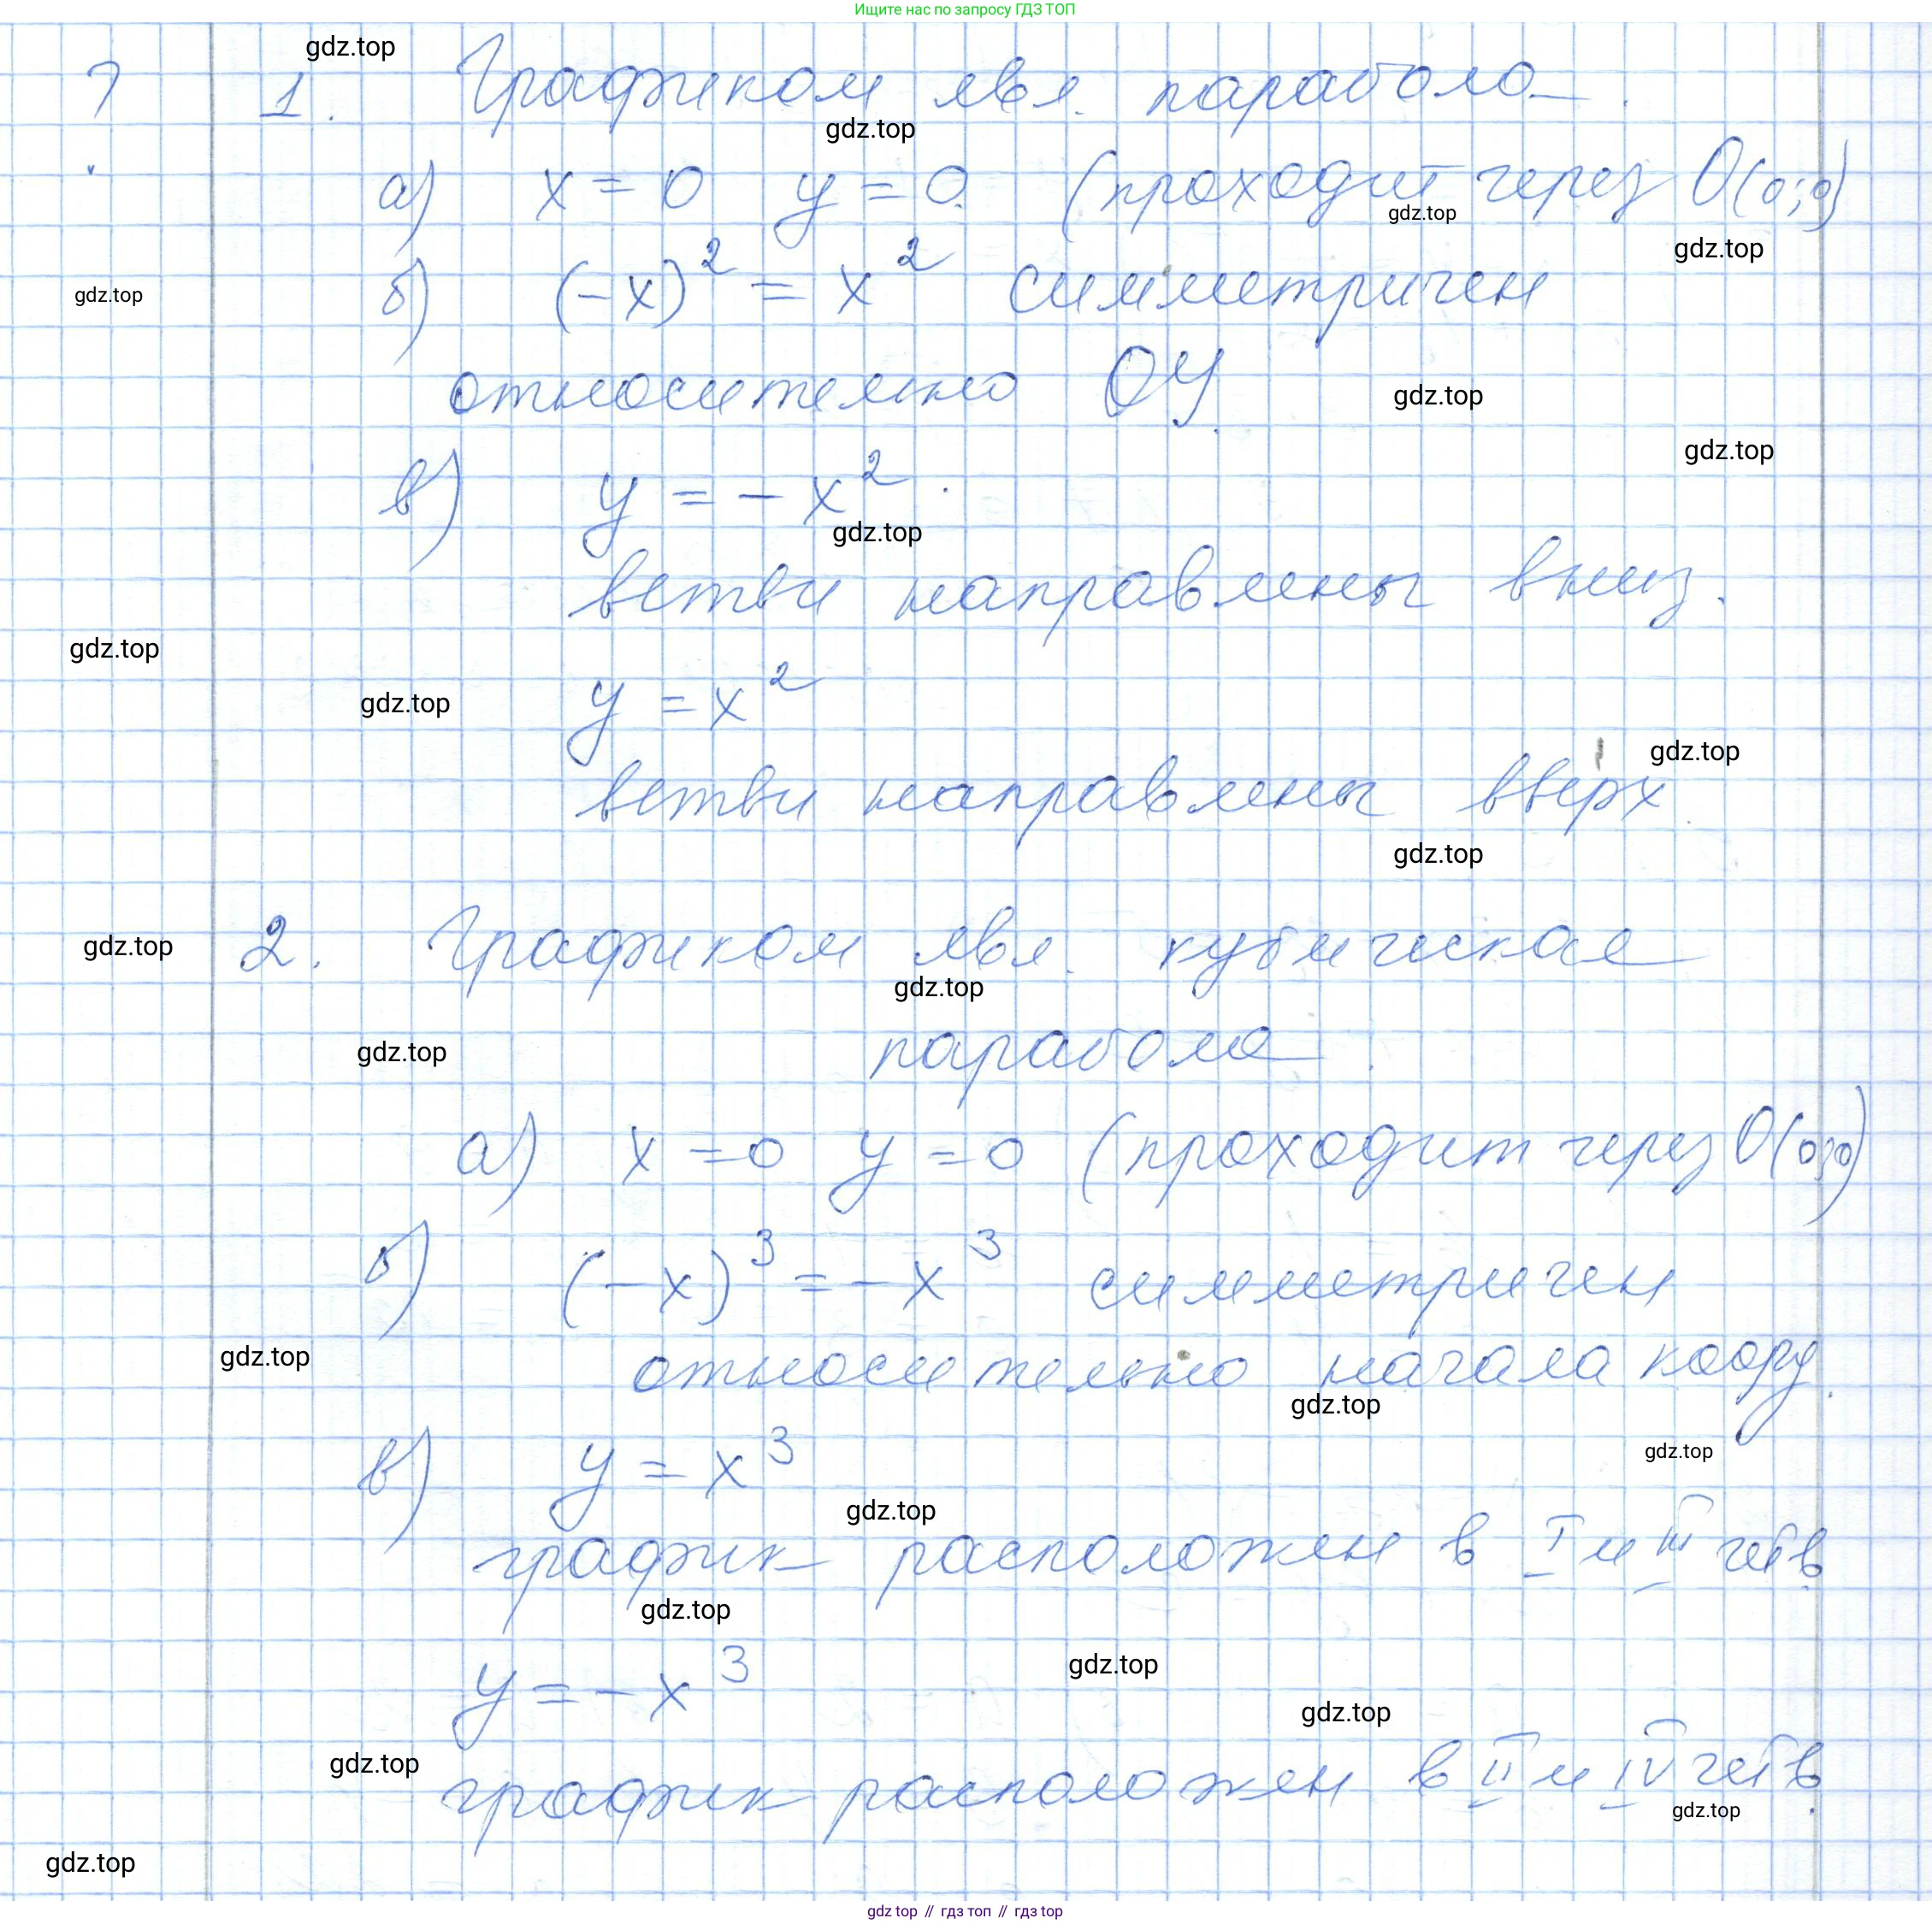 Ищите нас по запросу ГДЗ ТОП
gdz.top
? 1. Графиком явл. парабола.
gdz.top
а) x = 0 y = 0. (проходит через O(0;0)
gdz.top
gdz.top
gdz.top
б) (-x)² = x² симметричен
относительно OY.
gdz.top
gdz.top
в) y = -x².
gdz.top
ветви направлены вниз.
gdz.top
gdz.top
y = x²
gdz.top
ветви направлены вверх.
gdz.top
gdz.top
2. Графиком явл. кубическая
gdz.top
gdz.top
парабола.
а) x = 0 y = 0 (проходит через O(0;0)
б) (-x)³ = -x³ симметричен
gdz.top
относительно начала коорд.
gdz.top
gdz.top
в) y = x³
gdz.top
график расположен в I и III четв.
gdz.top
gdz.top
y = -x³
gdz.top
gdz.top
график расположен в II и IV четв.
gdz.top
gdz.top
gdz top // гдз топ // гдз top